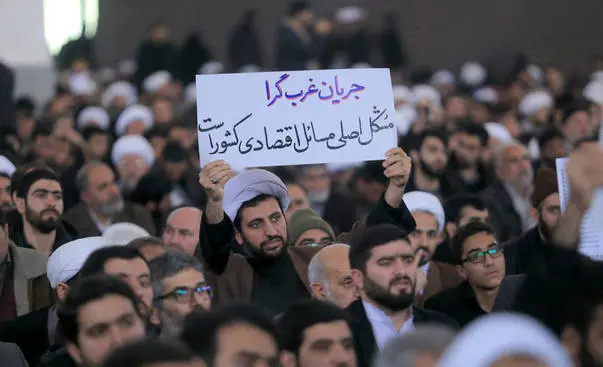 جریان غرب گرا
مشکل اصلی مسائل اقتصادی کشور است